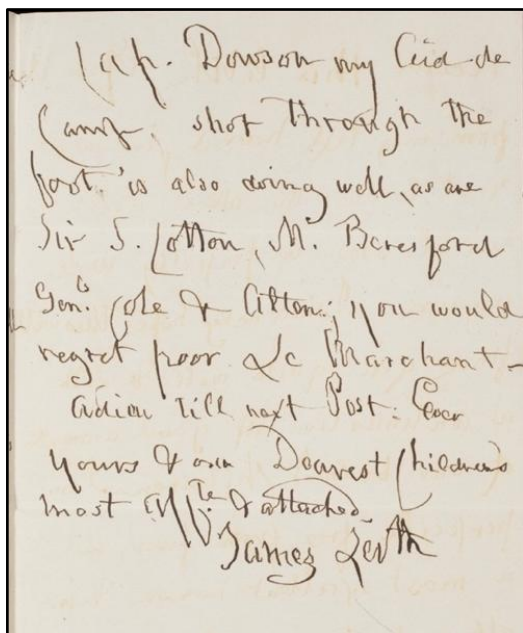 Cap. Dowson my Aid de
Camp. shot through the
foot. is also doing well, as are
Sir S. Cotton, M. Beresford
Genls Cole & Alten; you would
regret poor Le Marchant –
adieu till next Post. Ever
yours & our Dearest Children's
most affte & attached
James Leith